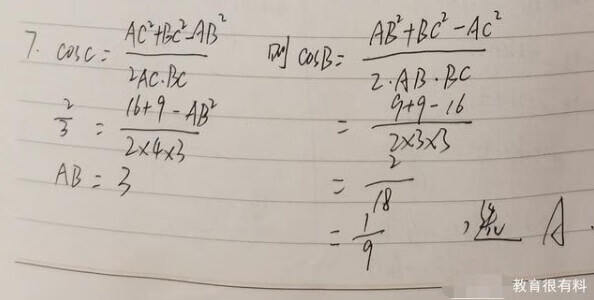 7. cosC = (AC²+BC²-AB²)/(2AC·BC)
2/3 = (16+9-AB²)/(2×4×3)
AB = 3
则 cosB = (AB²+BC²-AC²)/(2·AB·BC)
= (9+9-16)/(2×3×3)
= 2/18
= 1/9 , 选 A.
教育很有料